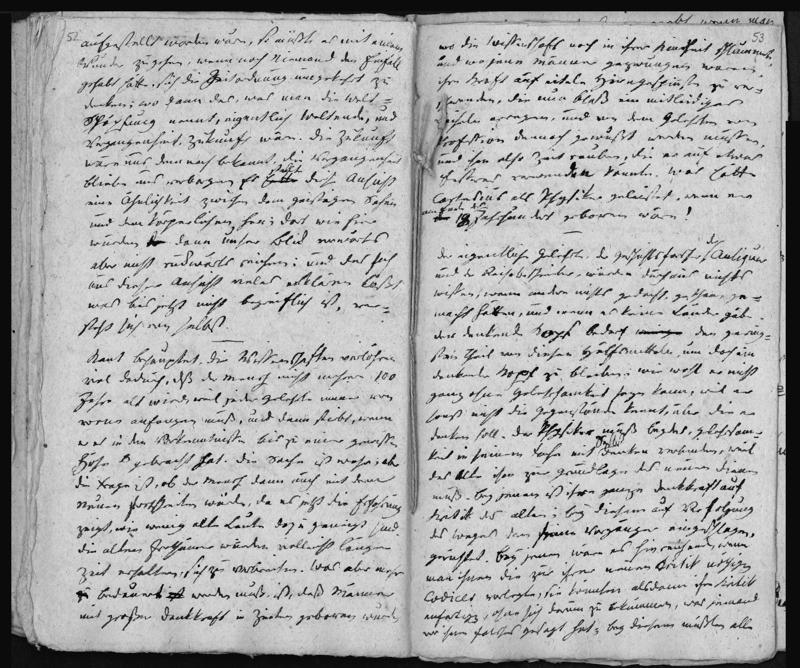 52
aufgestellt worden wäre, so müßte es mit einem
Wunder zugehen, wenn noch niemand den Einfall
gehabt hätte, sich die Zeitordnung umgekehrt zu
denken; wo dann das, was man die Welt-
Schöpfung nennt, eigentlich Weltende, und
Vergangenheit, Zukunft wäre. Die Zukunft
wäre uns demnach bekannt, die Vergangenheit
bliebe uns verborgen. Es hat diese Ansicht
eine Ähnlichkeit zwischen dem geistigen Sehen
und dem körperlichen her; dort wie hier
würden dann unser Blick vorwärts
aber nicht rückwärts reichen; und daß sich
aus dieser Ansicht vieles erklären läßt
was bis jetzt nicht begreiflich ist, ver-
steht sich von selbst.
Kant behauptet, die Wissenschaften verlöhren
viel dadurch, daß der Mensch nicht mehrere 100
Jahre alt wird, weil jeder Gelehrte immer von
vorne anfangen muß, und dann stirbt, wenn
er es in den Kenntnissen bis zu einer gewissen
Höhe gebracht hat. Die Sache ist wahr; aber
die Frage ist, ob der Mensch dann auch mit dem
Neuen fortschreiten würde, da es jetzt die Erfahrung
zeigt, wie wenig alte Leute dazu geneigt sind.
Die alten Irrthümer würden vielleicht längere
Zeit erhalten, sich zu verbreiten. Was aber mehr
zu bedauern werden muß, ist, daß Männer
mit großer Denkkraft in Zeiten geboren wurden
53
wo die Wissenschaft noch in ihrer Kindheit schlummerte,
und wo jene Männer gezwungen waren,
ihre Kraft auf eitele Hirngespinste zu ver-
schwenden, die nun bloß ein mitleidiges
Lächeln erregen, und von dem Gelehrten von
Profession dennoch gewußt werden müssen,
und ihm also Zeit rauben, die er auf etwas
besseres verwenden könnte. Was hätte
Cartesius als Physiker geleistet, wenn er
am Ende des
18 Jahrhundert geboren wäre!
Die eigentlichen Gelehrten, die Geschichtsforscher, die Antiquare
und die Reisebeschreiber, würden durchaus nichts
wissen, wenn andere nichts gedacht, gethan, ge-
macht hätten, und wenn es keine Länder gäbe.
Der denkende Kopf bedarf den gering-
sten Theil von diesen Hülfsmitteln, um doch ein
denkender Kopf zu bleiben; wie wohl er nicht
ganz ohne Gelehrsamkeit seyn kann, weil er
sonst nicht die Gegenstände kennt, über die er
denken soll. Der Physiker muß beydes, Gelehrsam-
keit in seinem Fache mit Selbst denken verbinden, weil
das Alte ihm zur Grundlage des Neuen dienen
muß. Bey jenem ist ihre ganze Denkkraft auf
Kritik des Alten; bey diesem auf Verfolgung
des Weges den seine Vorgänger eingeschlagen,
gerichtet. Bey jenen wäre es hinreichend, wenn
man ihnen die zur ihrer neuen Kritik nöthigen
Codices vorlegte, sie könnten alsdann ihre Kritik
anfertigen, ohne sich darum zu bekümmern, was jemand
vor ihnen falsches gesagt hat; bey diesem müßten alle